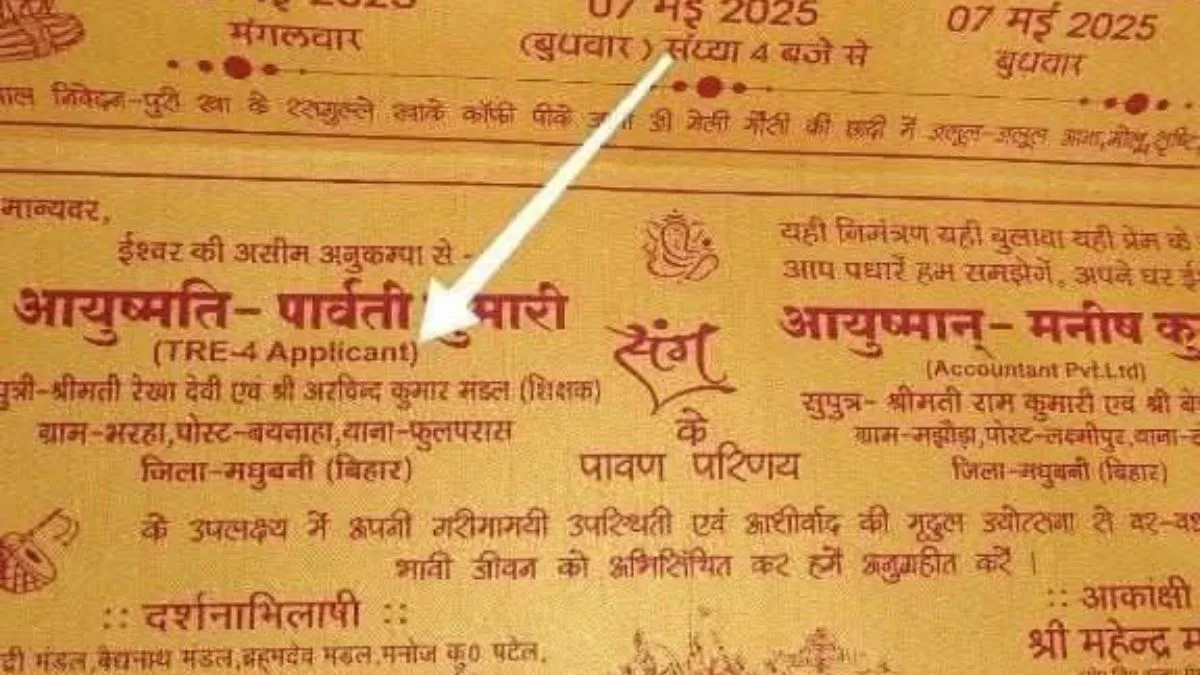 2025
मंगलवार
07 मई 2025
(बुधवार) संध्या 4 बजे से
07 मई 2025
बुधवार
निवेदन-पुरी खा के रसगुल्ले खाके कॉफी पीके जी मेली मौसी की छादी में जलूल-जलूल आना,
मान्यवर,
ईश्वर की असीम अनुकम्पा से -
आयुष्मति- पार्वती कुमारी
(TRE-4 Applicant)
पुत्री-श्रीमती रेखा देवी एवं श्री अरविन्द कुमार मडल (शिक्षक)
ग्राम-भरहा,पोस्ट-बथनाहा,थाना-फुलपरास
जिला-मधुबनी (बिहार)
संग
के
पावण परिणय
यही निमंत्रण यही बुलावा यही प्रेम के
आप पधारें हम समझेगें, अपने घर
आयुष्मान्- मनीष
(Accountant Pvt.Ltd)
सुपुत्र- श्रीमती राम कुमारी एवं श्री
ग्राम-मझौड़ा,पोस्ट-लक्ष्मीपुर,थाना-
जिला-मधुबनी (बिहार)
के उपलक्ष्य में अपनी गरीमामयी उपस्थिती एवं आशीर्वाद की मृदुल ज्योत्सना से वर-
भावी जीवन को अभिसिंचित कर हमें अनुग्रहीत करें ।
:: दर्शनाभिलाषी ::
मंडल,बैद्यनाथ मंडल,ब्रह्मदेव मंडल,मनोज कु० पटेल,
:: आकांक्षी
श्री महेन्द्र